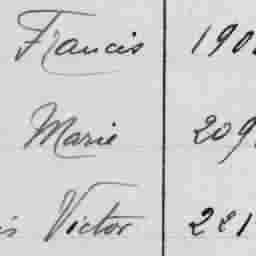 Francis 190
Marie 209
is Victor 221